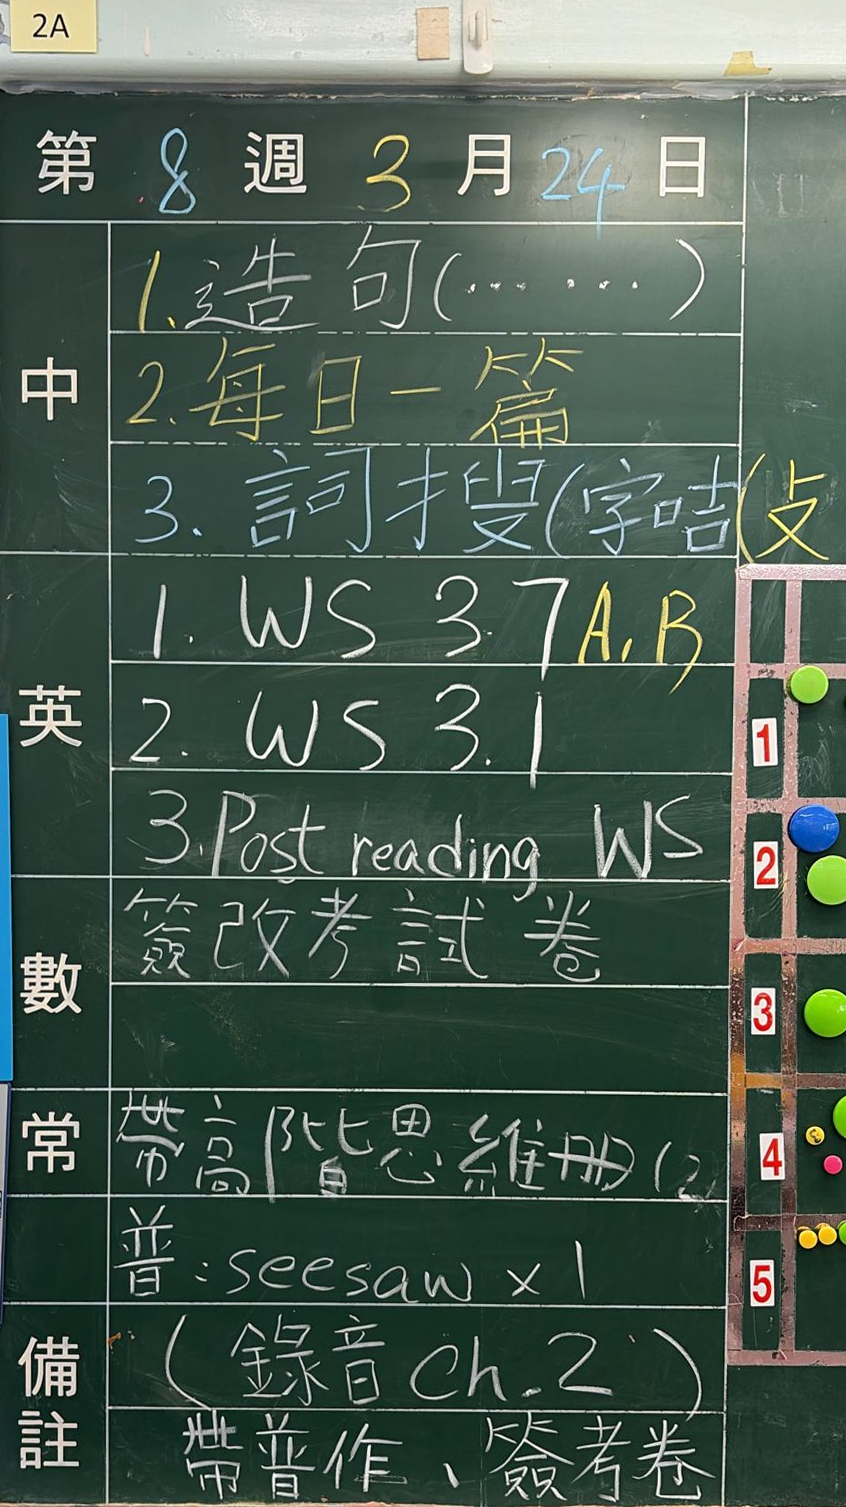 2A
第 8 週 3 月 24 日
中
1. 造句(……)
2. 每日一篇
3. 詞搜(字咭(攴
英
1. WS 3.7 A, B
2. WS 3.1
3. Post reading WS
數
簽改考試卷
常
帶高階思維冊(2)
普:seesaw x 1
備註
(錄音 Ch.2)
帶普作、簽考卷
1
2
3
4
5